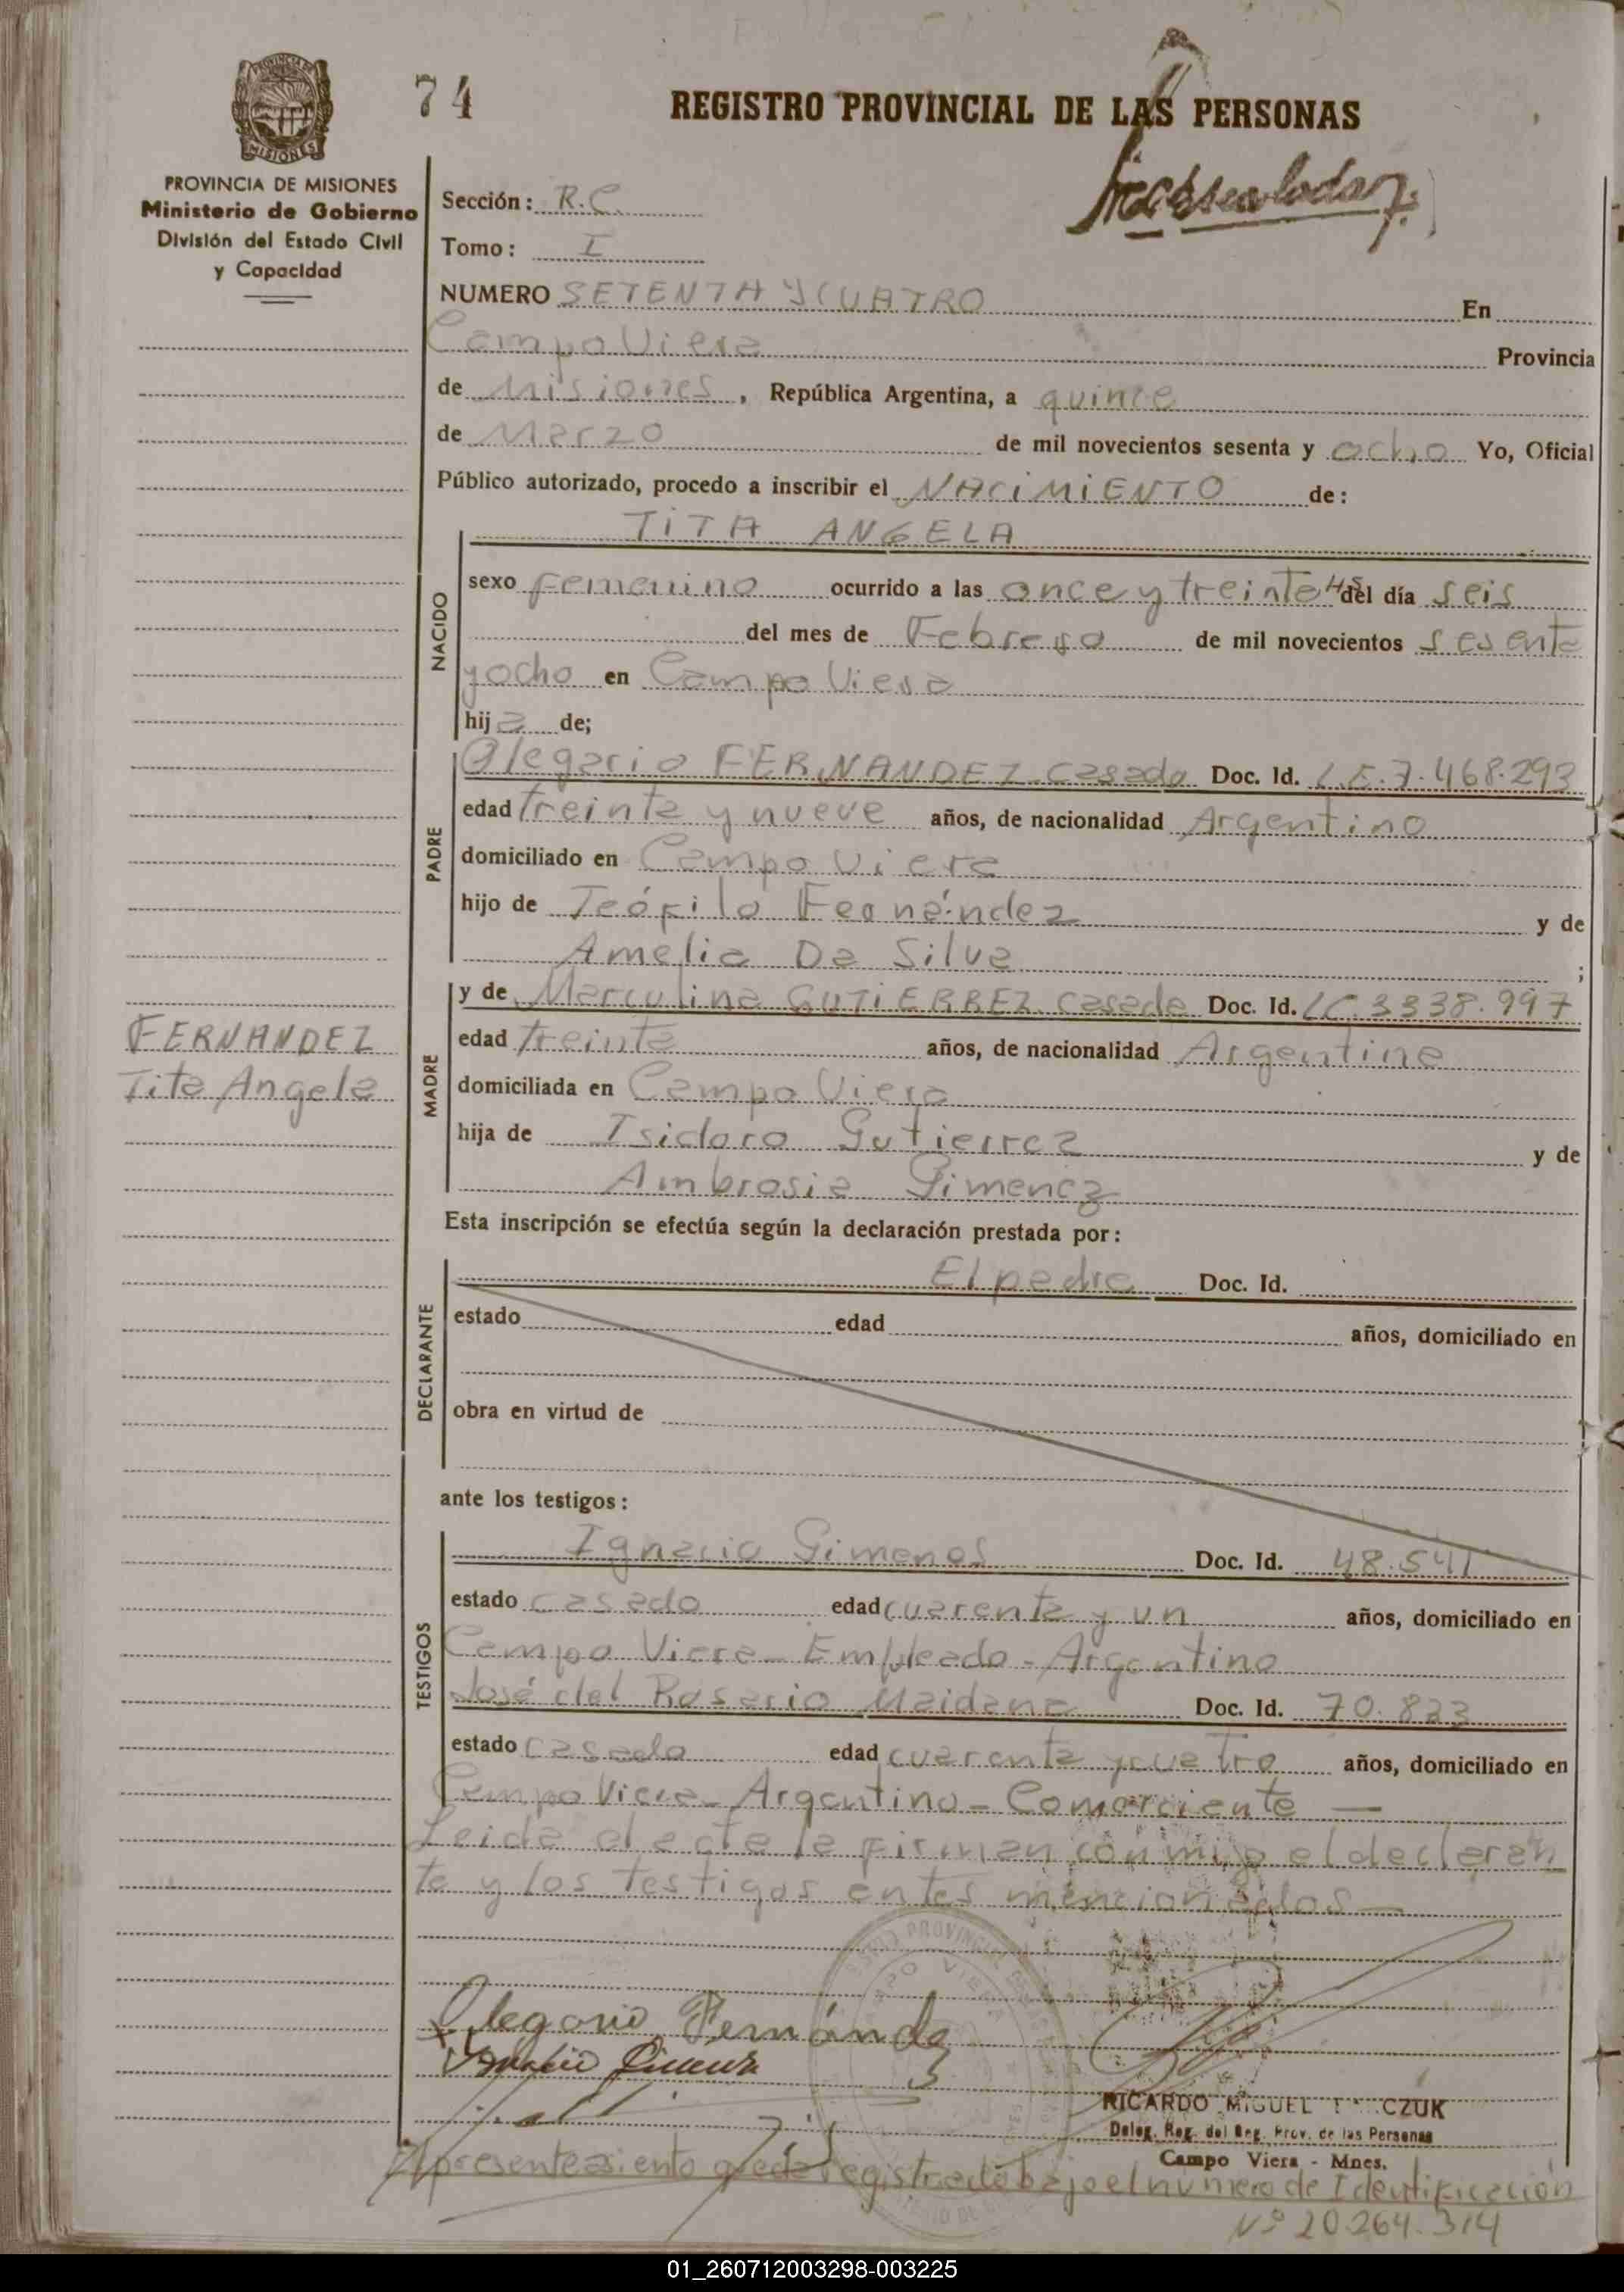 74
REGISTRO PROVINCIAL DE LAS PERSONAS
MISIONES
PROVINCIA DE MISIONES
Ministerio de Gobierno
División del Estado Civil
y Capacidad
Sección: R.C.
Tomo: I
NUMERO SETENTA Y CUATRO En
Campo Viera Provincia
de Misiones, República Argentina, a quince
de Marzo de mil novecientos sesenta y ocho Yo, Oficial
Público autorizado, procedo a inscribir el NACIMIENTO de:
TITA ANGELA
NACIDO
sexo femenino ocurrido a las once y treinta hs del día seis
del mes de Febrero de mil novecientos sesenta
y ocho en Campo Viera
hij a de;
PADRE
Olegario FERNANDEZ casado Doc. Id. L.E. 7.468.293
edad treinta y nueve años, de nacionalidad Argentino
domiciliado en Campo Viera
hijo de Teófilo Fernández y de
Amelia Da Silva ;
MADRE
y de Marculina GUTIERREZ casada Doc. Id. LC. 3338.997
edad treinta años, de nacionalidad Argentina
domiciliada en Campo Viera
hija de Isidoro Gutierrez y de
Ambrosia Gimenez
FERNANDEZ
Tita Angela
Esta inscripción se efectúa según la declaración prestada por:
DECLARANTE
El padre Doc. Id.
estado edad años, domiciliado en
obra en virtud de
ante los testigos:
TESTIGOS
Ignacio Gimenes Doc. Id. 48.541
estado casado edad cuarenta y un años, domiciliado en
Campo Viera - Empleado - Argentino
José del Rosario Maidana Doc. Id. 70.823
estado casado edad cuarenta y cuatro años, domiciliado en
Campo Viera - Argentino - Comerciante —
Leida el acta la firman conmigo el declaran
te y los testigos antes mencionados —
Olegario Fernández
RICARDO MIGUEL CZUK
Deleg. Reg. del Reg. Prov. de las Personas
Campo Viera - Mnes.
El presente asiento queda registrado bajo el número de Identificación
Nº 20.264.314
01_260712003298-003225